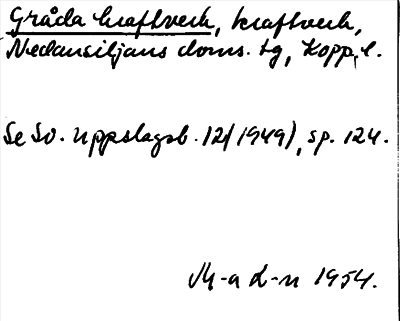 Gråda kraftverk, kraftverk,
Nedansiljans doms. tg, Kopp. l.
Se Sv. Uppslagsb. 12(1949), sp. 124.
M-a L-n 1954.